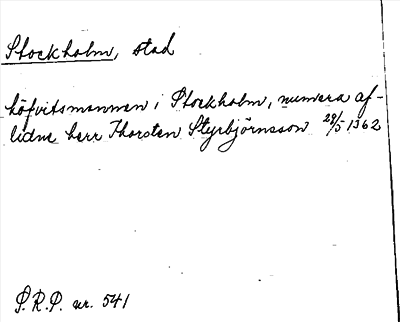 Stockholm, stad
höfvitsmannen i Stockholm, numera af-
lidne herr Thorsten Styrbjörnsson 28/5 1362
P.R.P. nr. 541